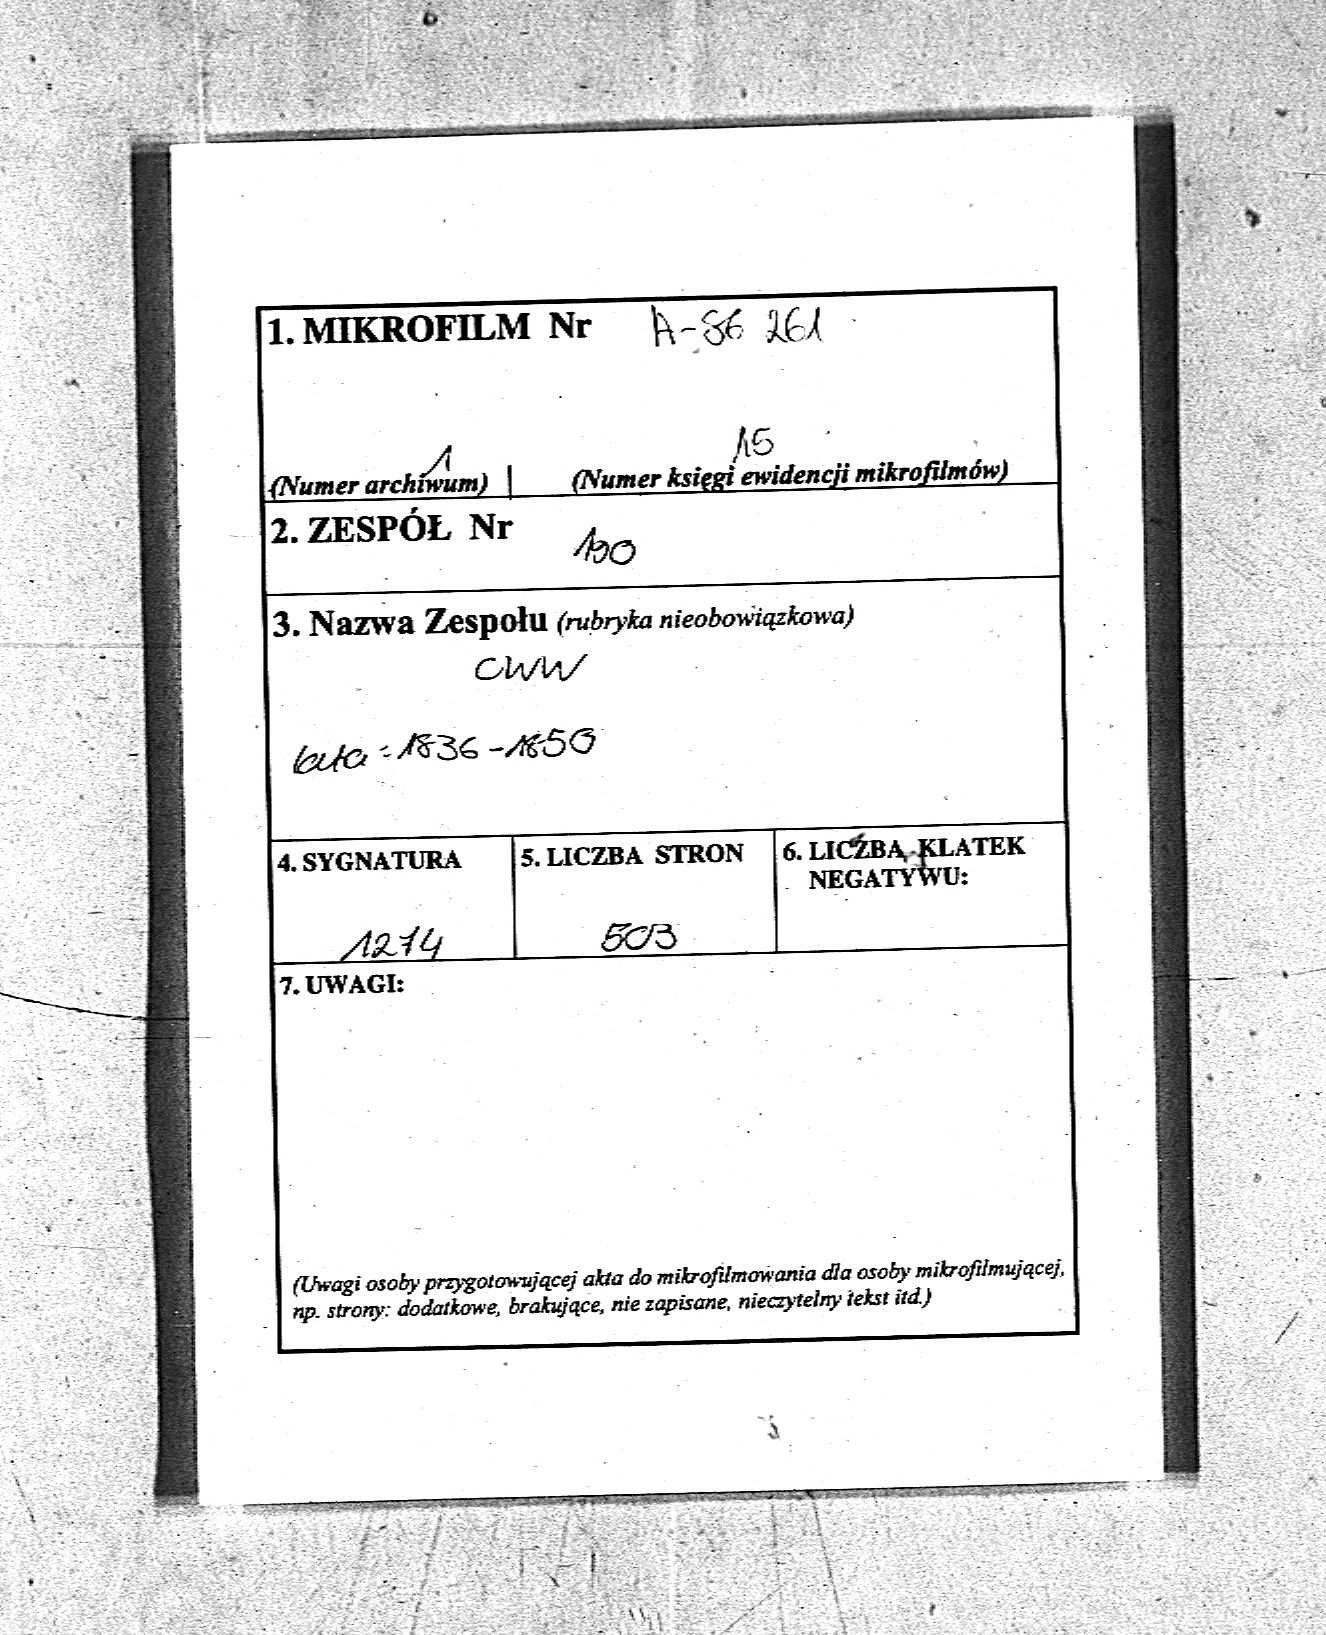 1. MIKROFILM Nr A-86 261
1 15
(Numer archiwum) (Numer księgi ewidencji mikrofilmów)
2. ZESPÓŁ Nr 190
3. Nazwa Zespołu (rubryka nieobowiązkowa)
CWW
lata: 1836-1850
4. SYGNATURA 5. LICZBA STRON 6. LICZBA KLATEK
NEGATYWU:
1274 503
7. UWAGI:
(Uwagi osoby przygotowującej akta do mikrofilmowania dla osoby mikrofilmującej,
np. strony: dodatkowe, brakujące, nie zapisane, nieczytelny tekst itd.)